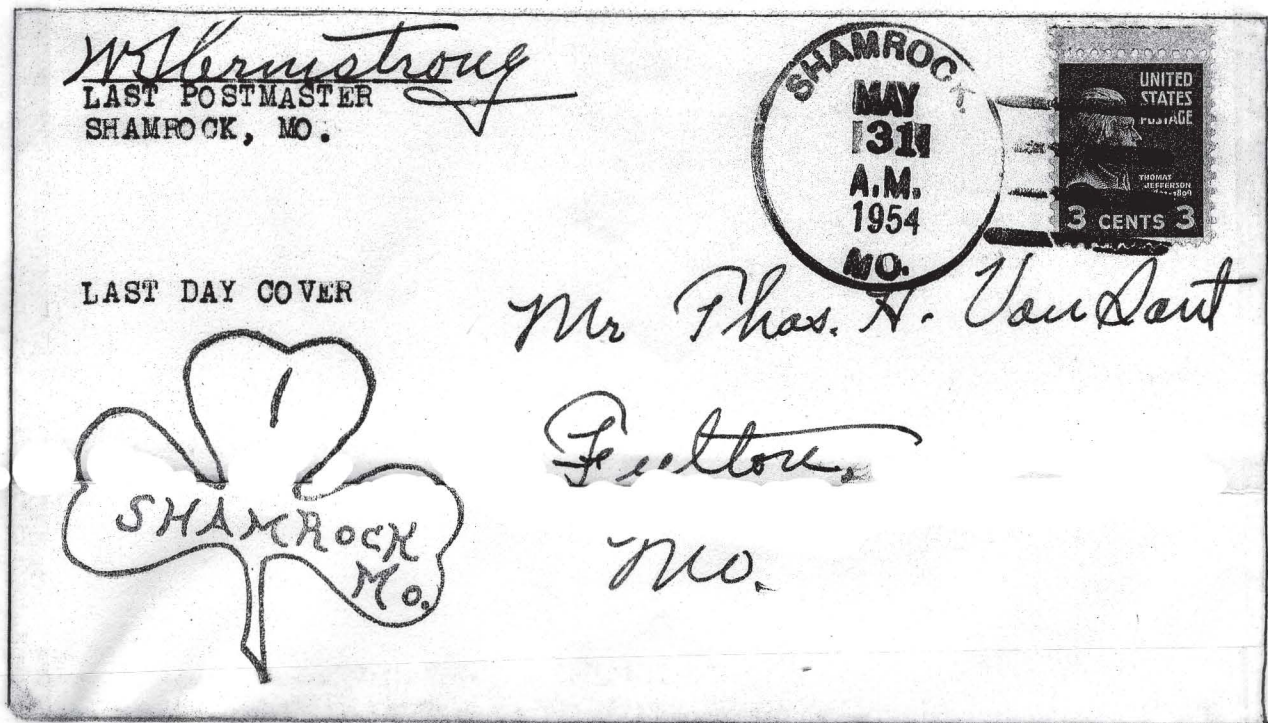 Armstrong
LAST POSTMASTER
SHAMROCK, MO.
SHAMROCK
MAY
31
A.M.
1954
MO.
UNITED
STATES
POSTAGE
THOMAS
JEFFERSON
3 CENTS 3
LAST DAY COVER
Mr Thos. H. Van Sant
Fulton,
Mo.
SHAMROCK
Mo.